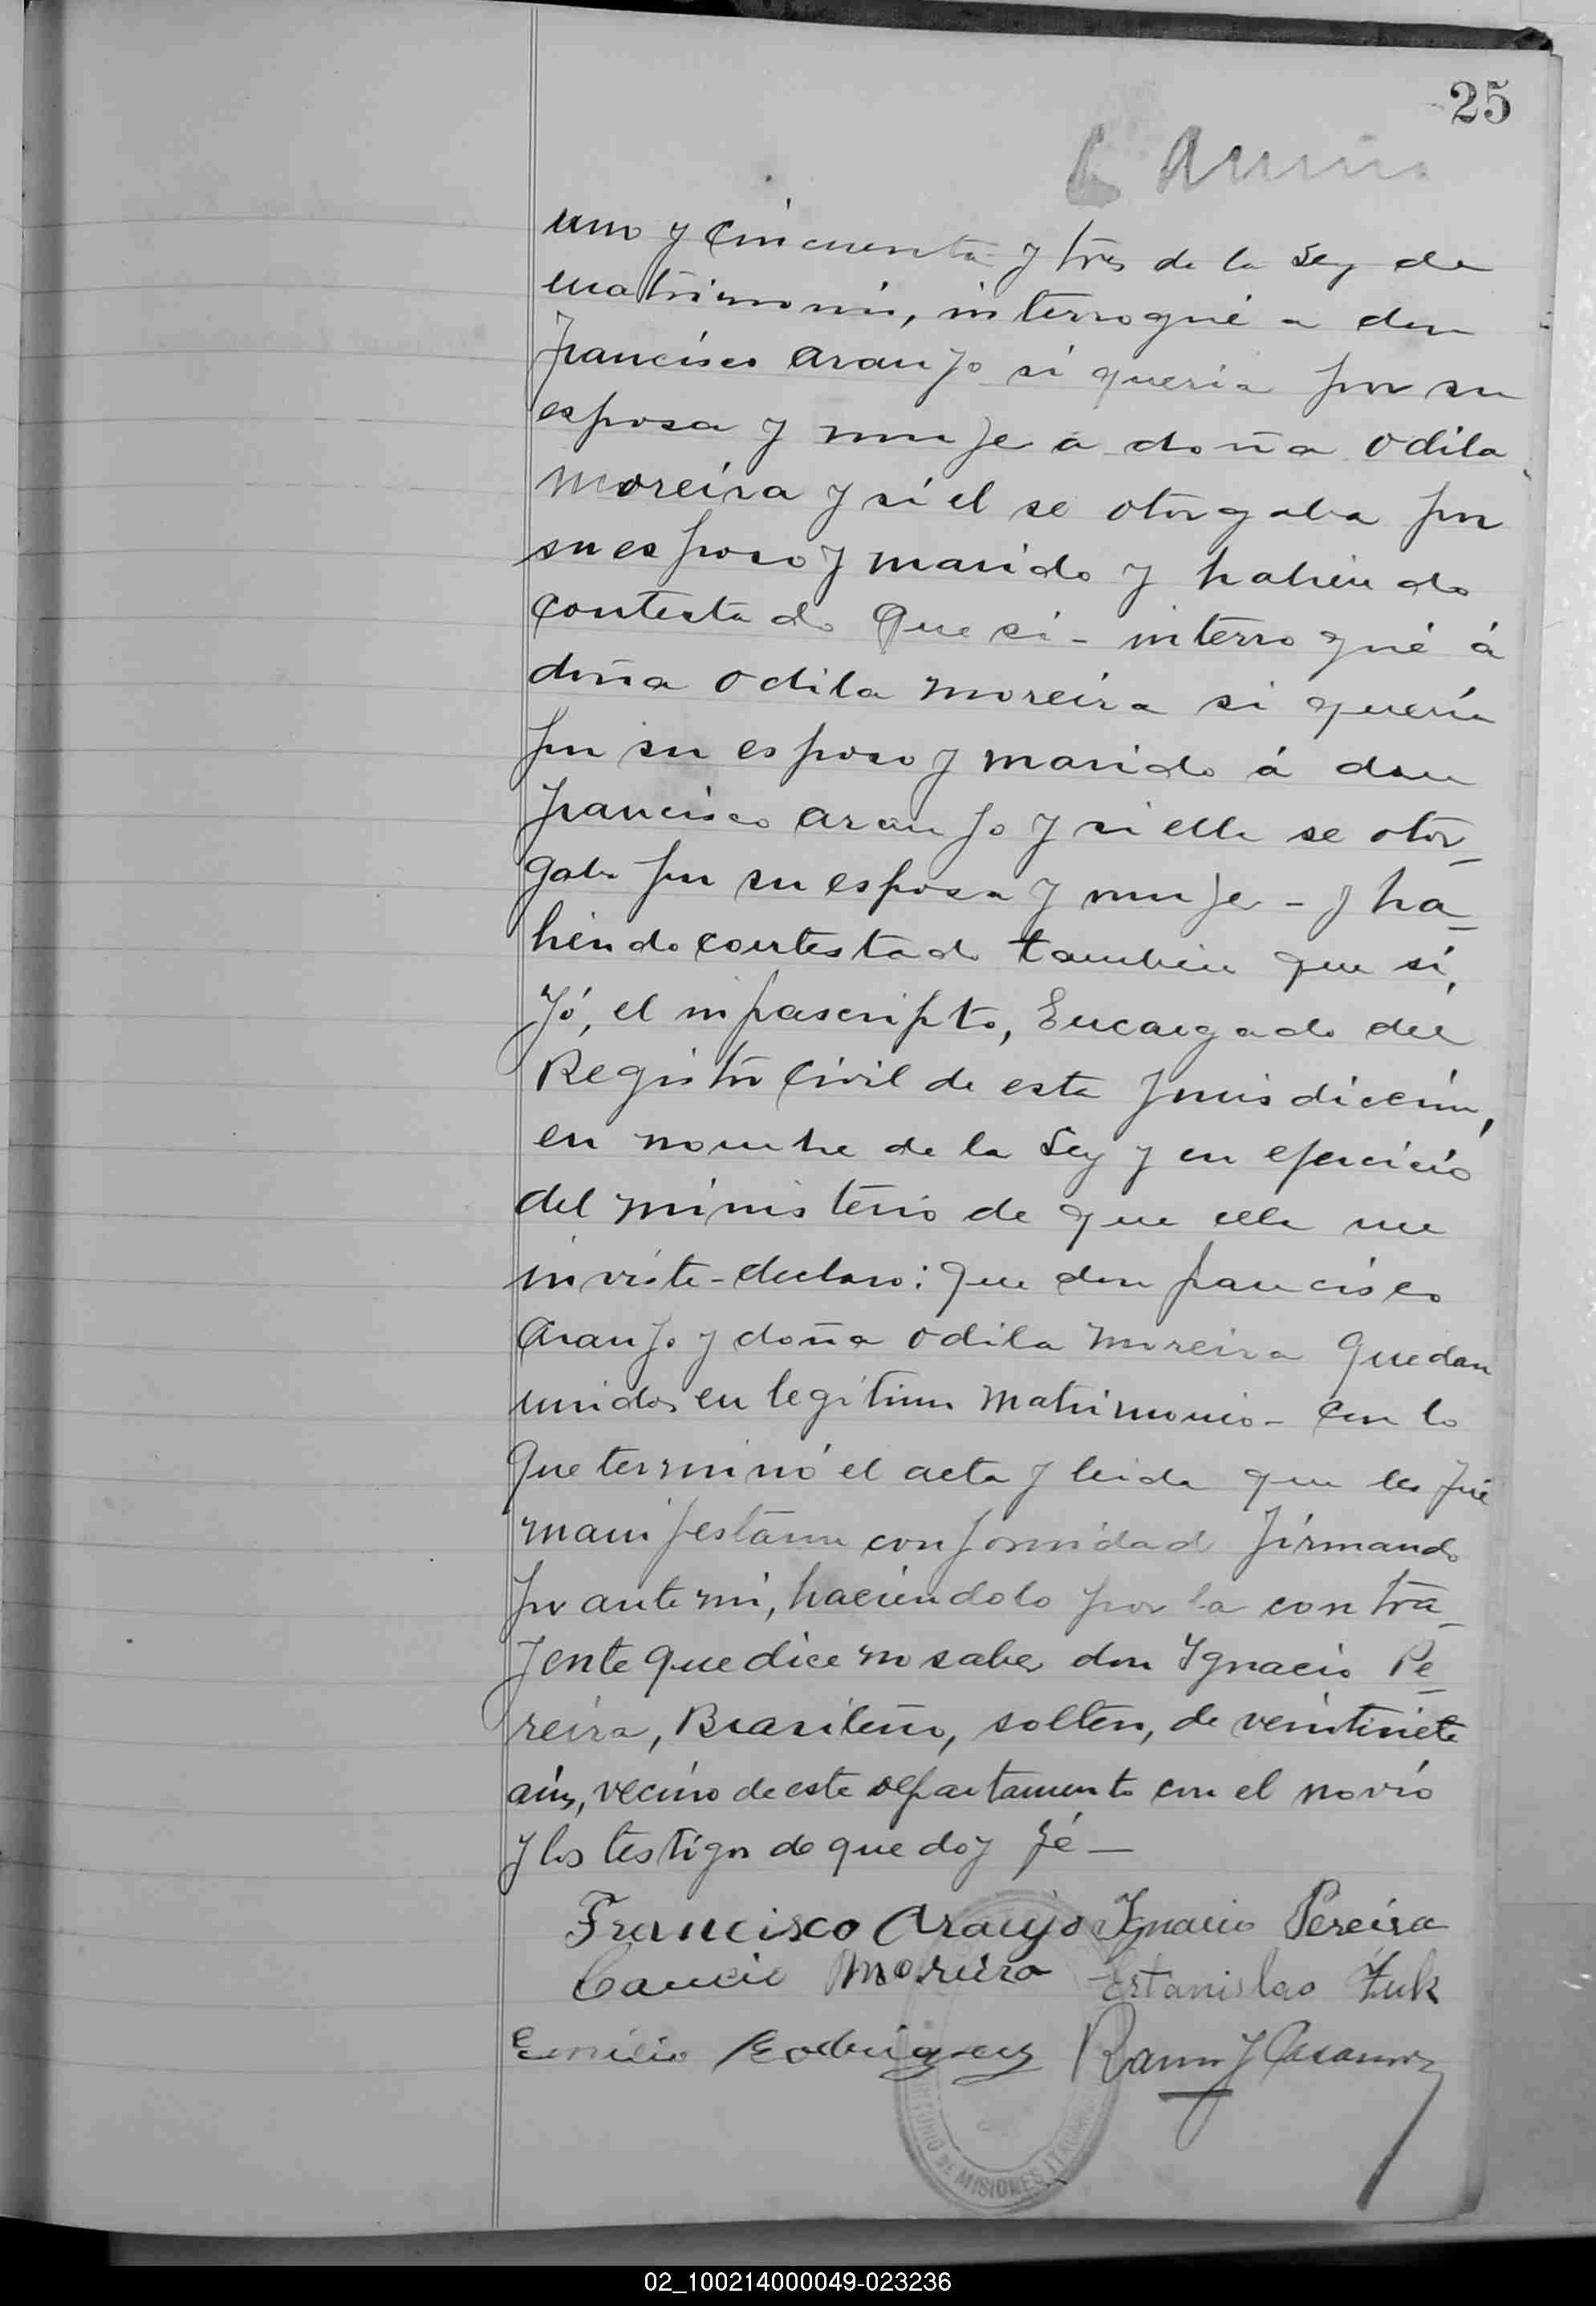 25
uno y Cincuenta y tres de la Ley de
matrimonio, interrogué a don
Francisco Araujo si queria por su
esposa y mujer a doña Odila
Moreira y si el se otorgaba por
su esposo y marido y habiendo
contestado que si - interrogué á
doña Odila Moreira si quería
por su esposo y marido á don
Francisco Araujo y si ella se otor-
gaba por su esposa y mujer - y ha-
biendo contestado tambien que sí,
Yó, el infrascripto, Encargado del
Registro Civil de esta Jurisdiccion,
en nombre de la Ley y en ejercicio
del ministerio de que ella me
inviste - declaro: que don Francisco
Araujo y doña Odila Moreira quedan
unidos en legitimo matrimonio - Con lo
que terminó el acta y leida que les fué
manifestaron conformidad firmando
por ante mi, haciendolo por la contra-
yente que dice no saber don Ygnacio Pe-
reira, Brasileño, soltero, de veintisiete
años, vecino de este departamento con el novio
y los testigos de que doy fé -
Francisco Araujo Ygnacio Pereira
Cancio Moreira Estanislao Zuk
Emilio Rodriguez Ramon J Casanova
DE MISIONES
02_100214000049-023236